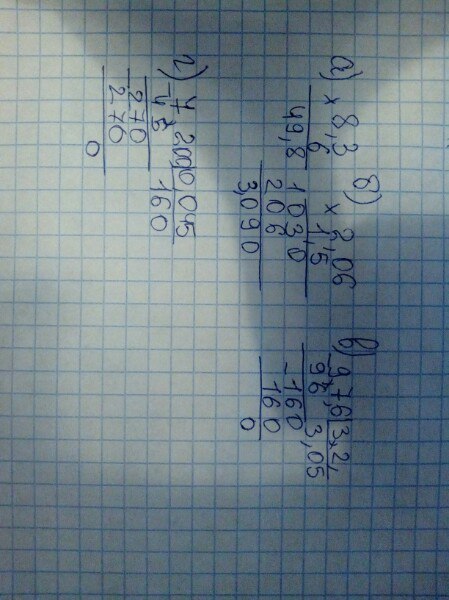 а) × 8,3
6
49,8
б) × 2,06
1,5
1030
206
3,090
в) 9,7,6 3,2,
96 3,05
-160
160
0
г) 7 200 0 045
-45 160
270
270
0